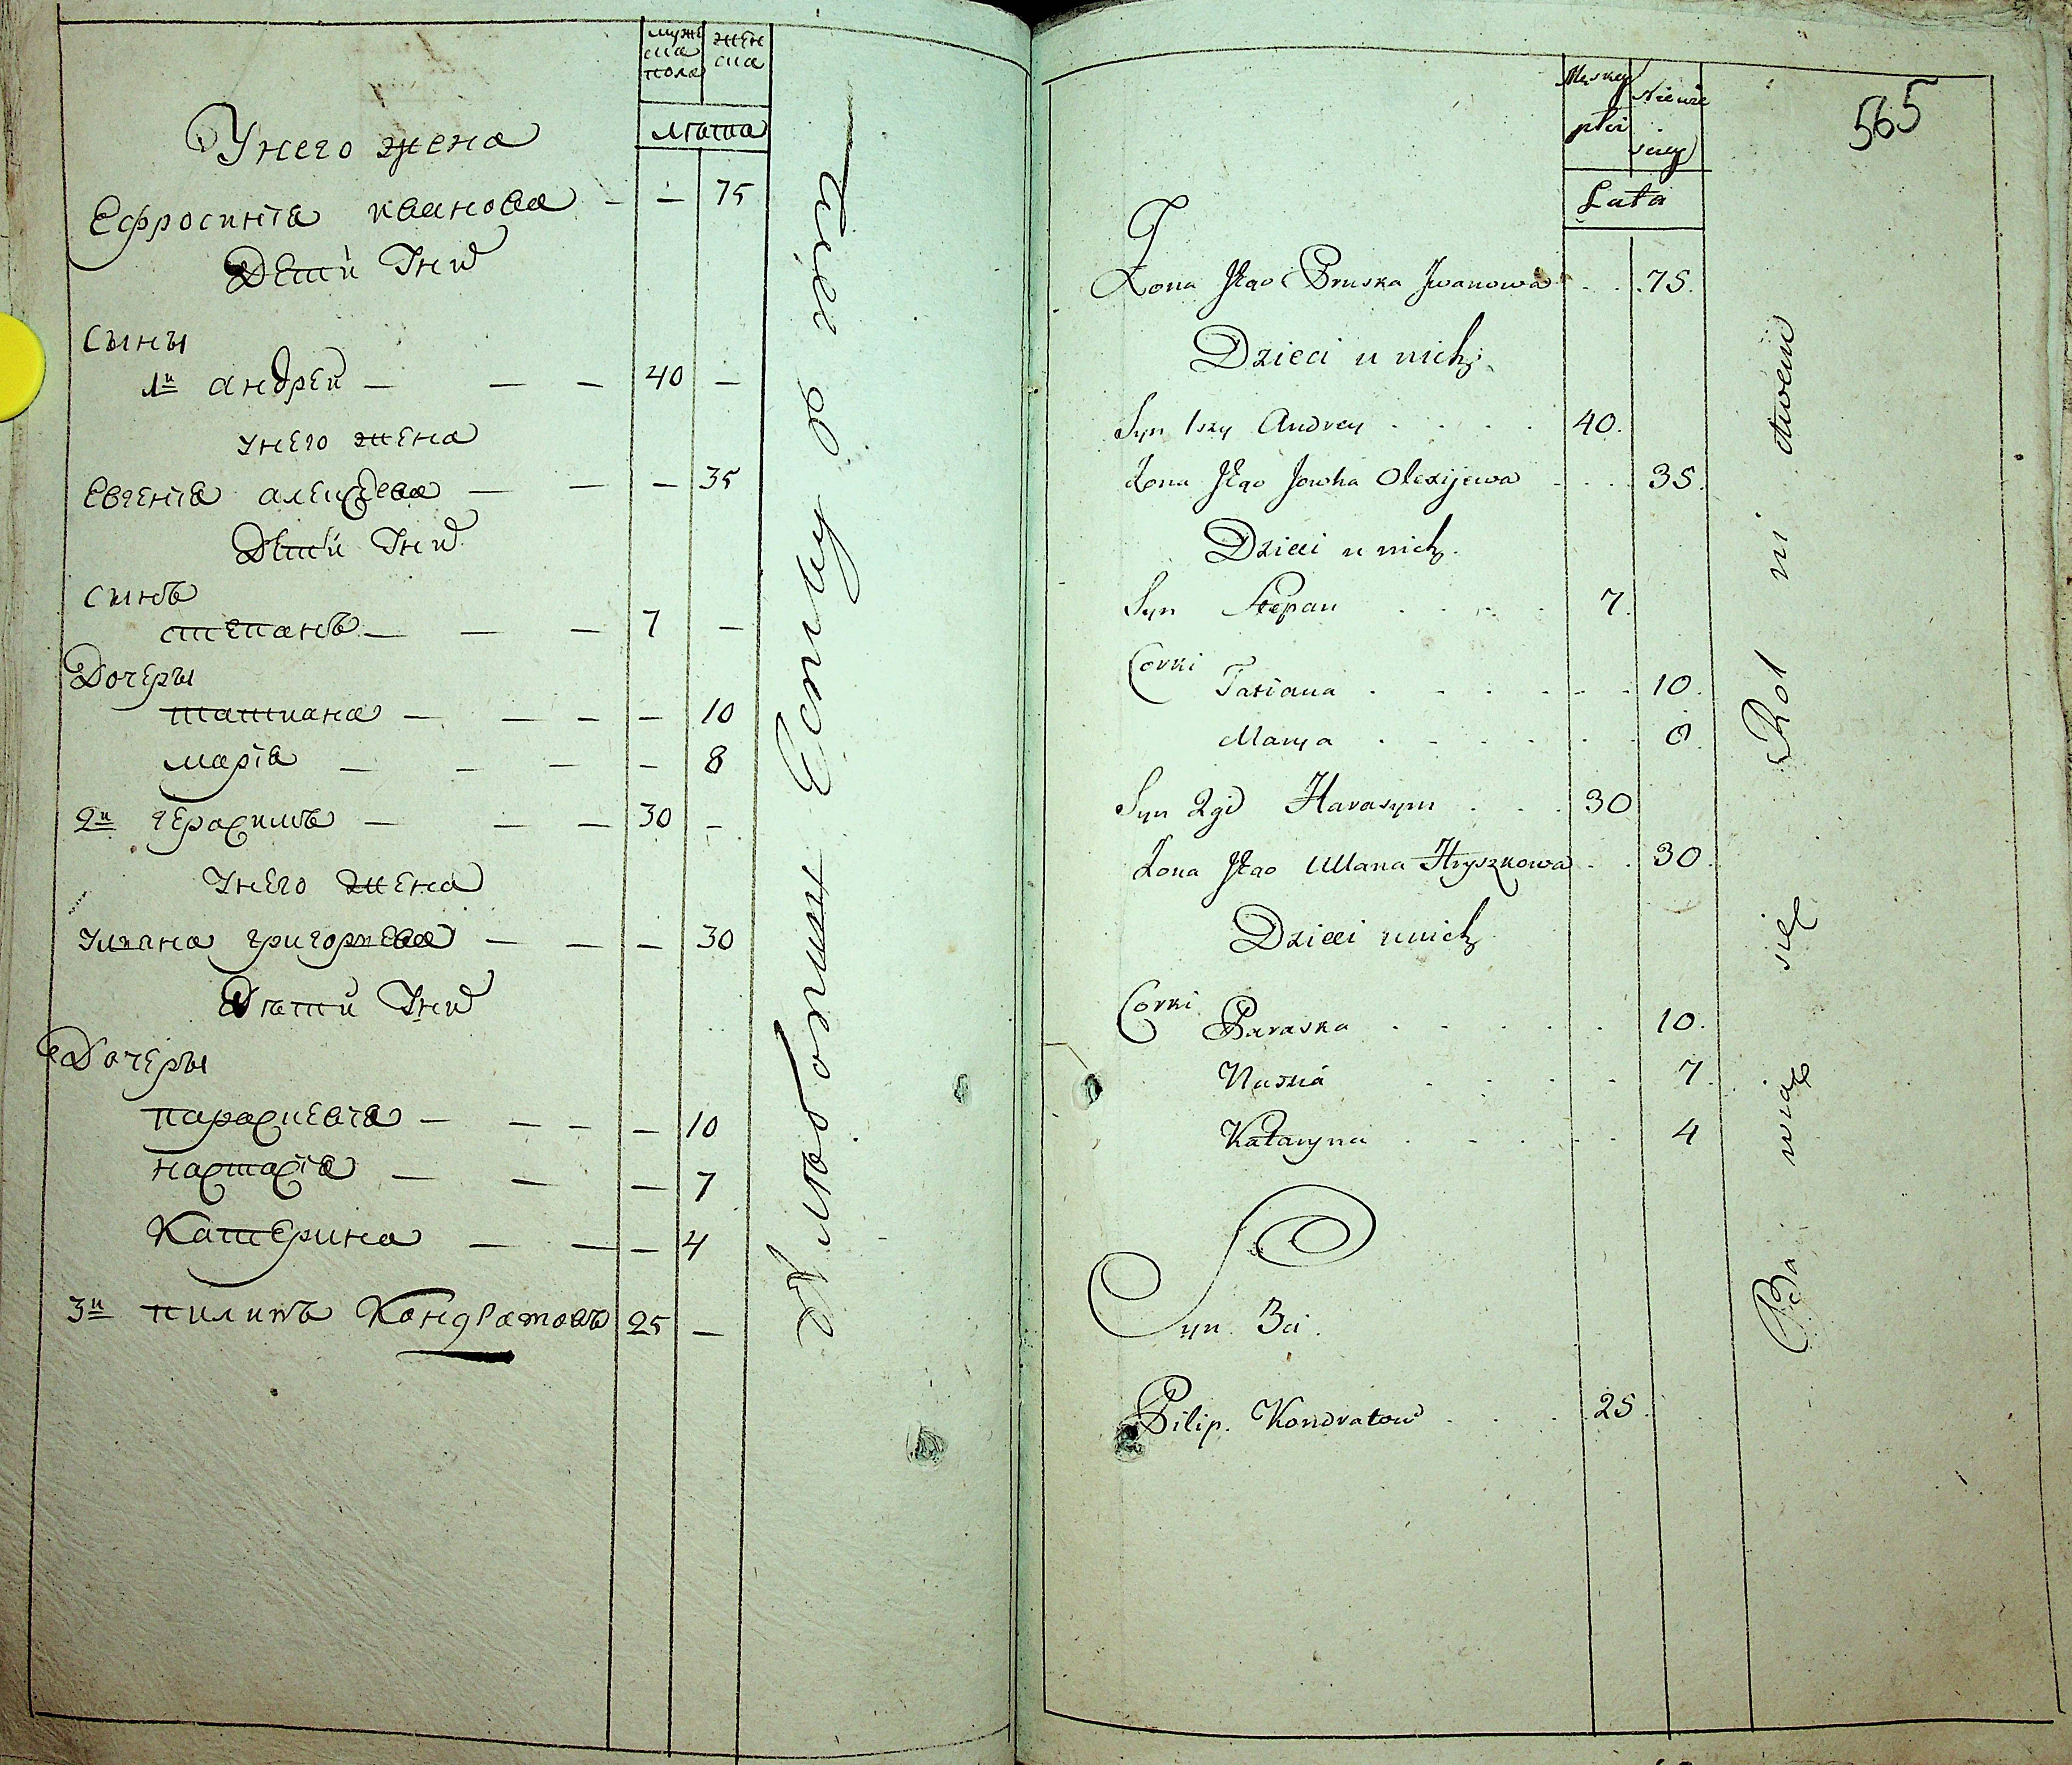 мужс
ка
пола
жен
ска
лѣта
У него жена
Ефросинїа иванова — — 75
Дети У них
Сыны
1й андрей — — — 40 —
у него жена
Евгенїа алексеева — — — 35
Дети У них
сынъ
степанъ — — — 7 —
Дочеры
татиана — — — — 10
марїа — — — — 8
2й герасимъ — — — 30 —
У него жена
Улиана григориева — — — 30
Дѣти У них
Дочеры
параскевїа — — — — 10
настасїа — — — 7
Катерина — — — 4
3й пилипъ Кондратовъ 25 —
565
Męskey
płci
Lata
Zona Jego Pruska Jwanowa . . 75.
Dzieci u nich
Syn 1szy Andrey . . . . 40.
Zona Jego Jowha Olexijewa . . . 35.
Dzieci u nich.
Syn Stepan . . . . 7.
Corki
Tatiana . . . . . . 10.
Marya . . . . . . 8.
Syn 2gi Harasym . . . 30
Zona Jego Ullana Hryszkowa . . 30.
Dzieci u nich
Corki
Paraska . . . . . 10.
Naścia . . . . 7.
Kataryna . . . . . 4
Syn 3ci.
Pilip. Kondratow . . . . 25.